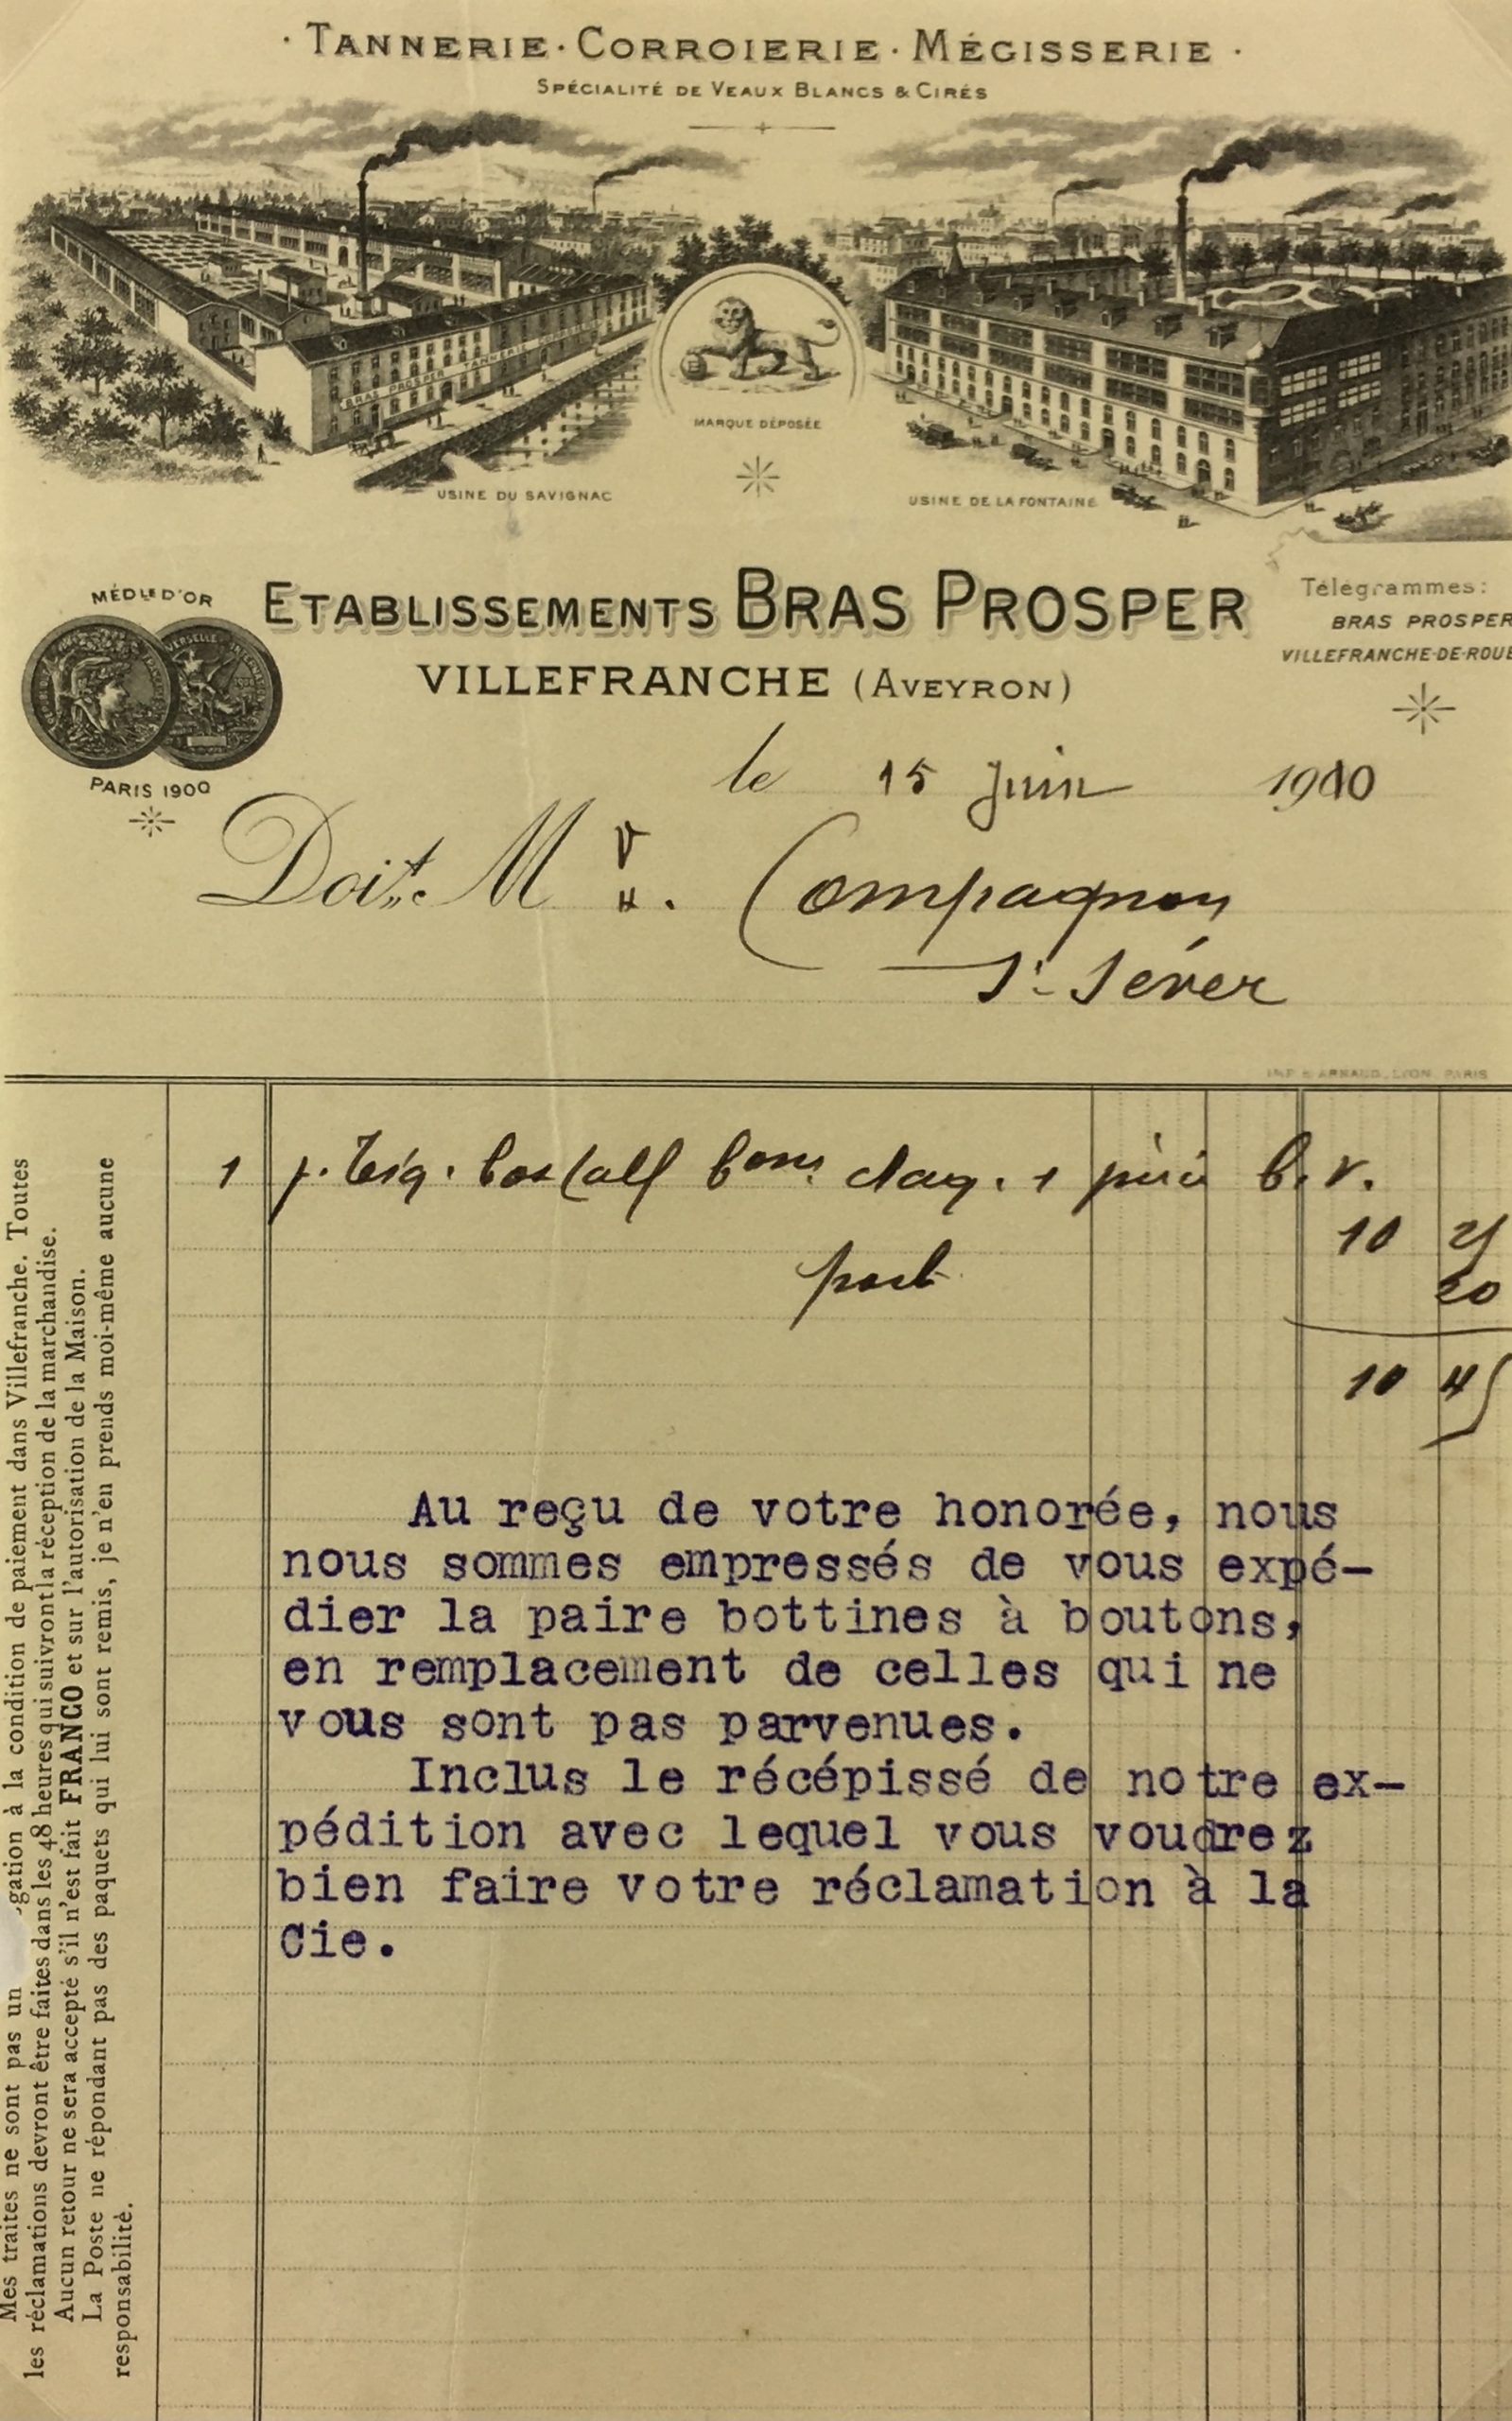 · TANNERIE · CORROIERIE · MÉGISSERIE ·
SPÉCIALITÉ DE VEAUX BLANCS & CIRÉS
BRAS PROSPER TANNERIE
MARQUE DÉPOSÉE
USINE DU SAVIGNAC
USINE DE LA FONTAINE
MÉD.LE D'OR
PARIS 1900
ETABLISSEMENTS BRAS PROSPER
VILLEFRANCHE (AVEYRON)
Télégrammes:
BRAS PROSPER
VILLEFRANCHE-DE-ROUE
le 15 Juin 1910
Doit M Compagnon
St Séver
IMP. B. ARNAUD, LYON. PARIS
1 p. boxcalf claq. 1 b. v.
10 25
port 20
10 45
Au reçu de votre honorée, nous
nous sommes empressés de vous expé-
dier la paire bottines à boutons,
en remplacement de celles qui ne
vous sont pas parvenues.
Inclus le récépissé de notre ex-
pédition avec lequel vous voudrez
bien faire votre réclamation à la
Cie.
Mes traites ne sont pas un gation à la condition de paiement dans Villefranche. Toutes
les réclamations devront être faites dans les 48 heures qui suivront la réception de la marchandise.
Aucun retour ne sera accepté s'il n'est fait FRANCO et sur l'autorisation de la Maison.
La Poste ne répondant pas des paquets qui lui sont remis, je n'en prends moi-même aucune
responsabilité.